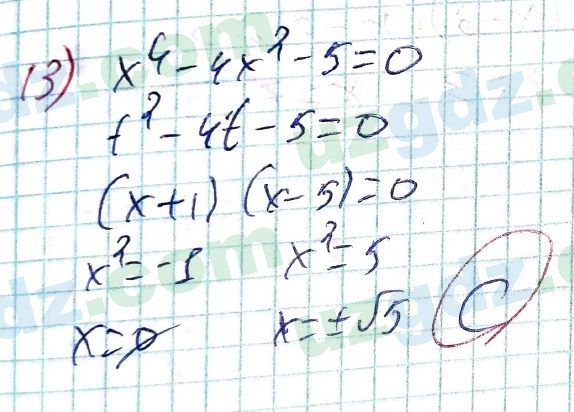 13) x⁴ - 4x² - 5 = 0
t² - 4t - 5 = 0
(x+1) (x-5) = 0
x² = -1 x² = 5
x = ∅ x = ±√5 C
uzgdz.com